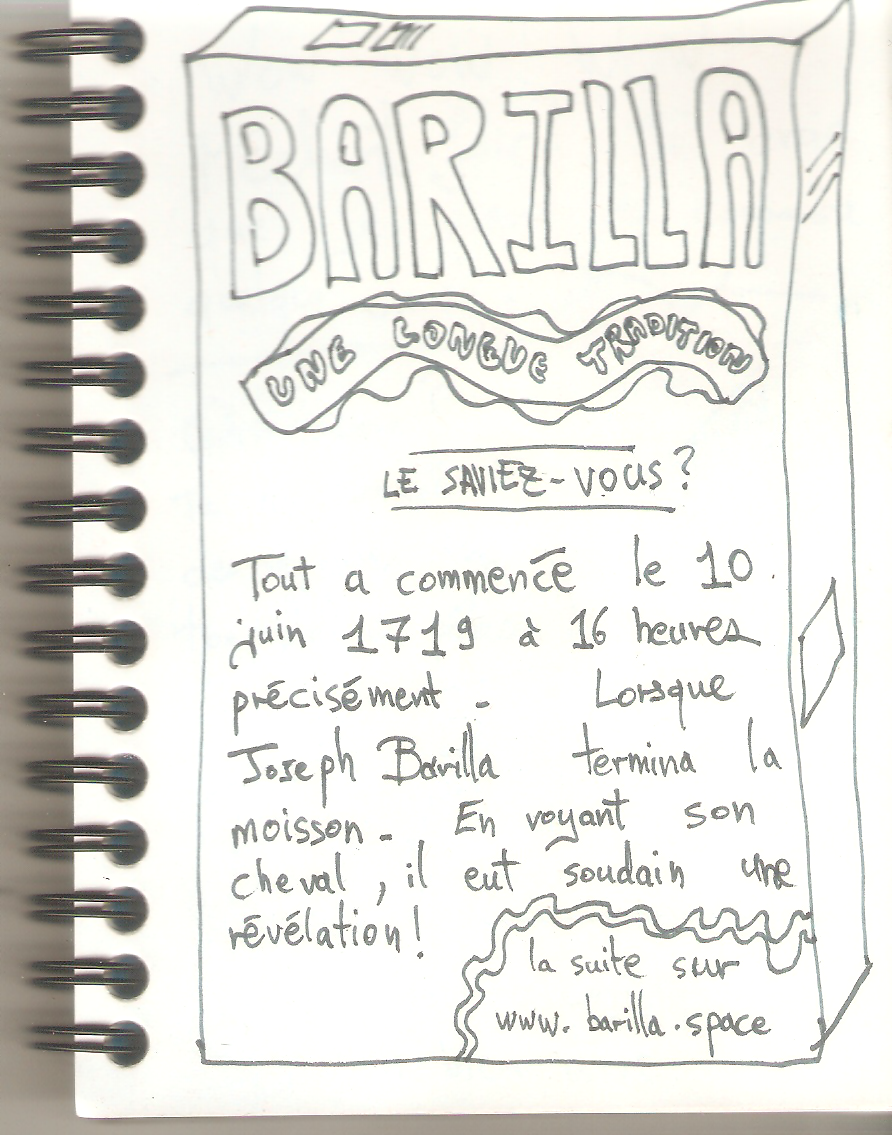 BARILLA
UNE LONGUE TRADITION
LE SAVIEZ-VOUS?
Tout a commencé le 10
juin 1719 à 16 heures
précisément. Lorsque
Joseph Barilla termina la
moisson. En voyant son
cheval, il eut soudain une
révélation!
la suite sur
www.barilla.space